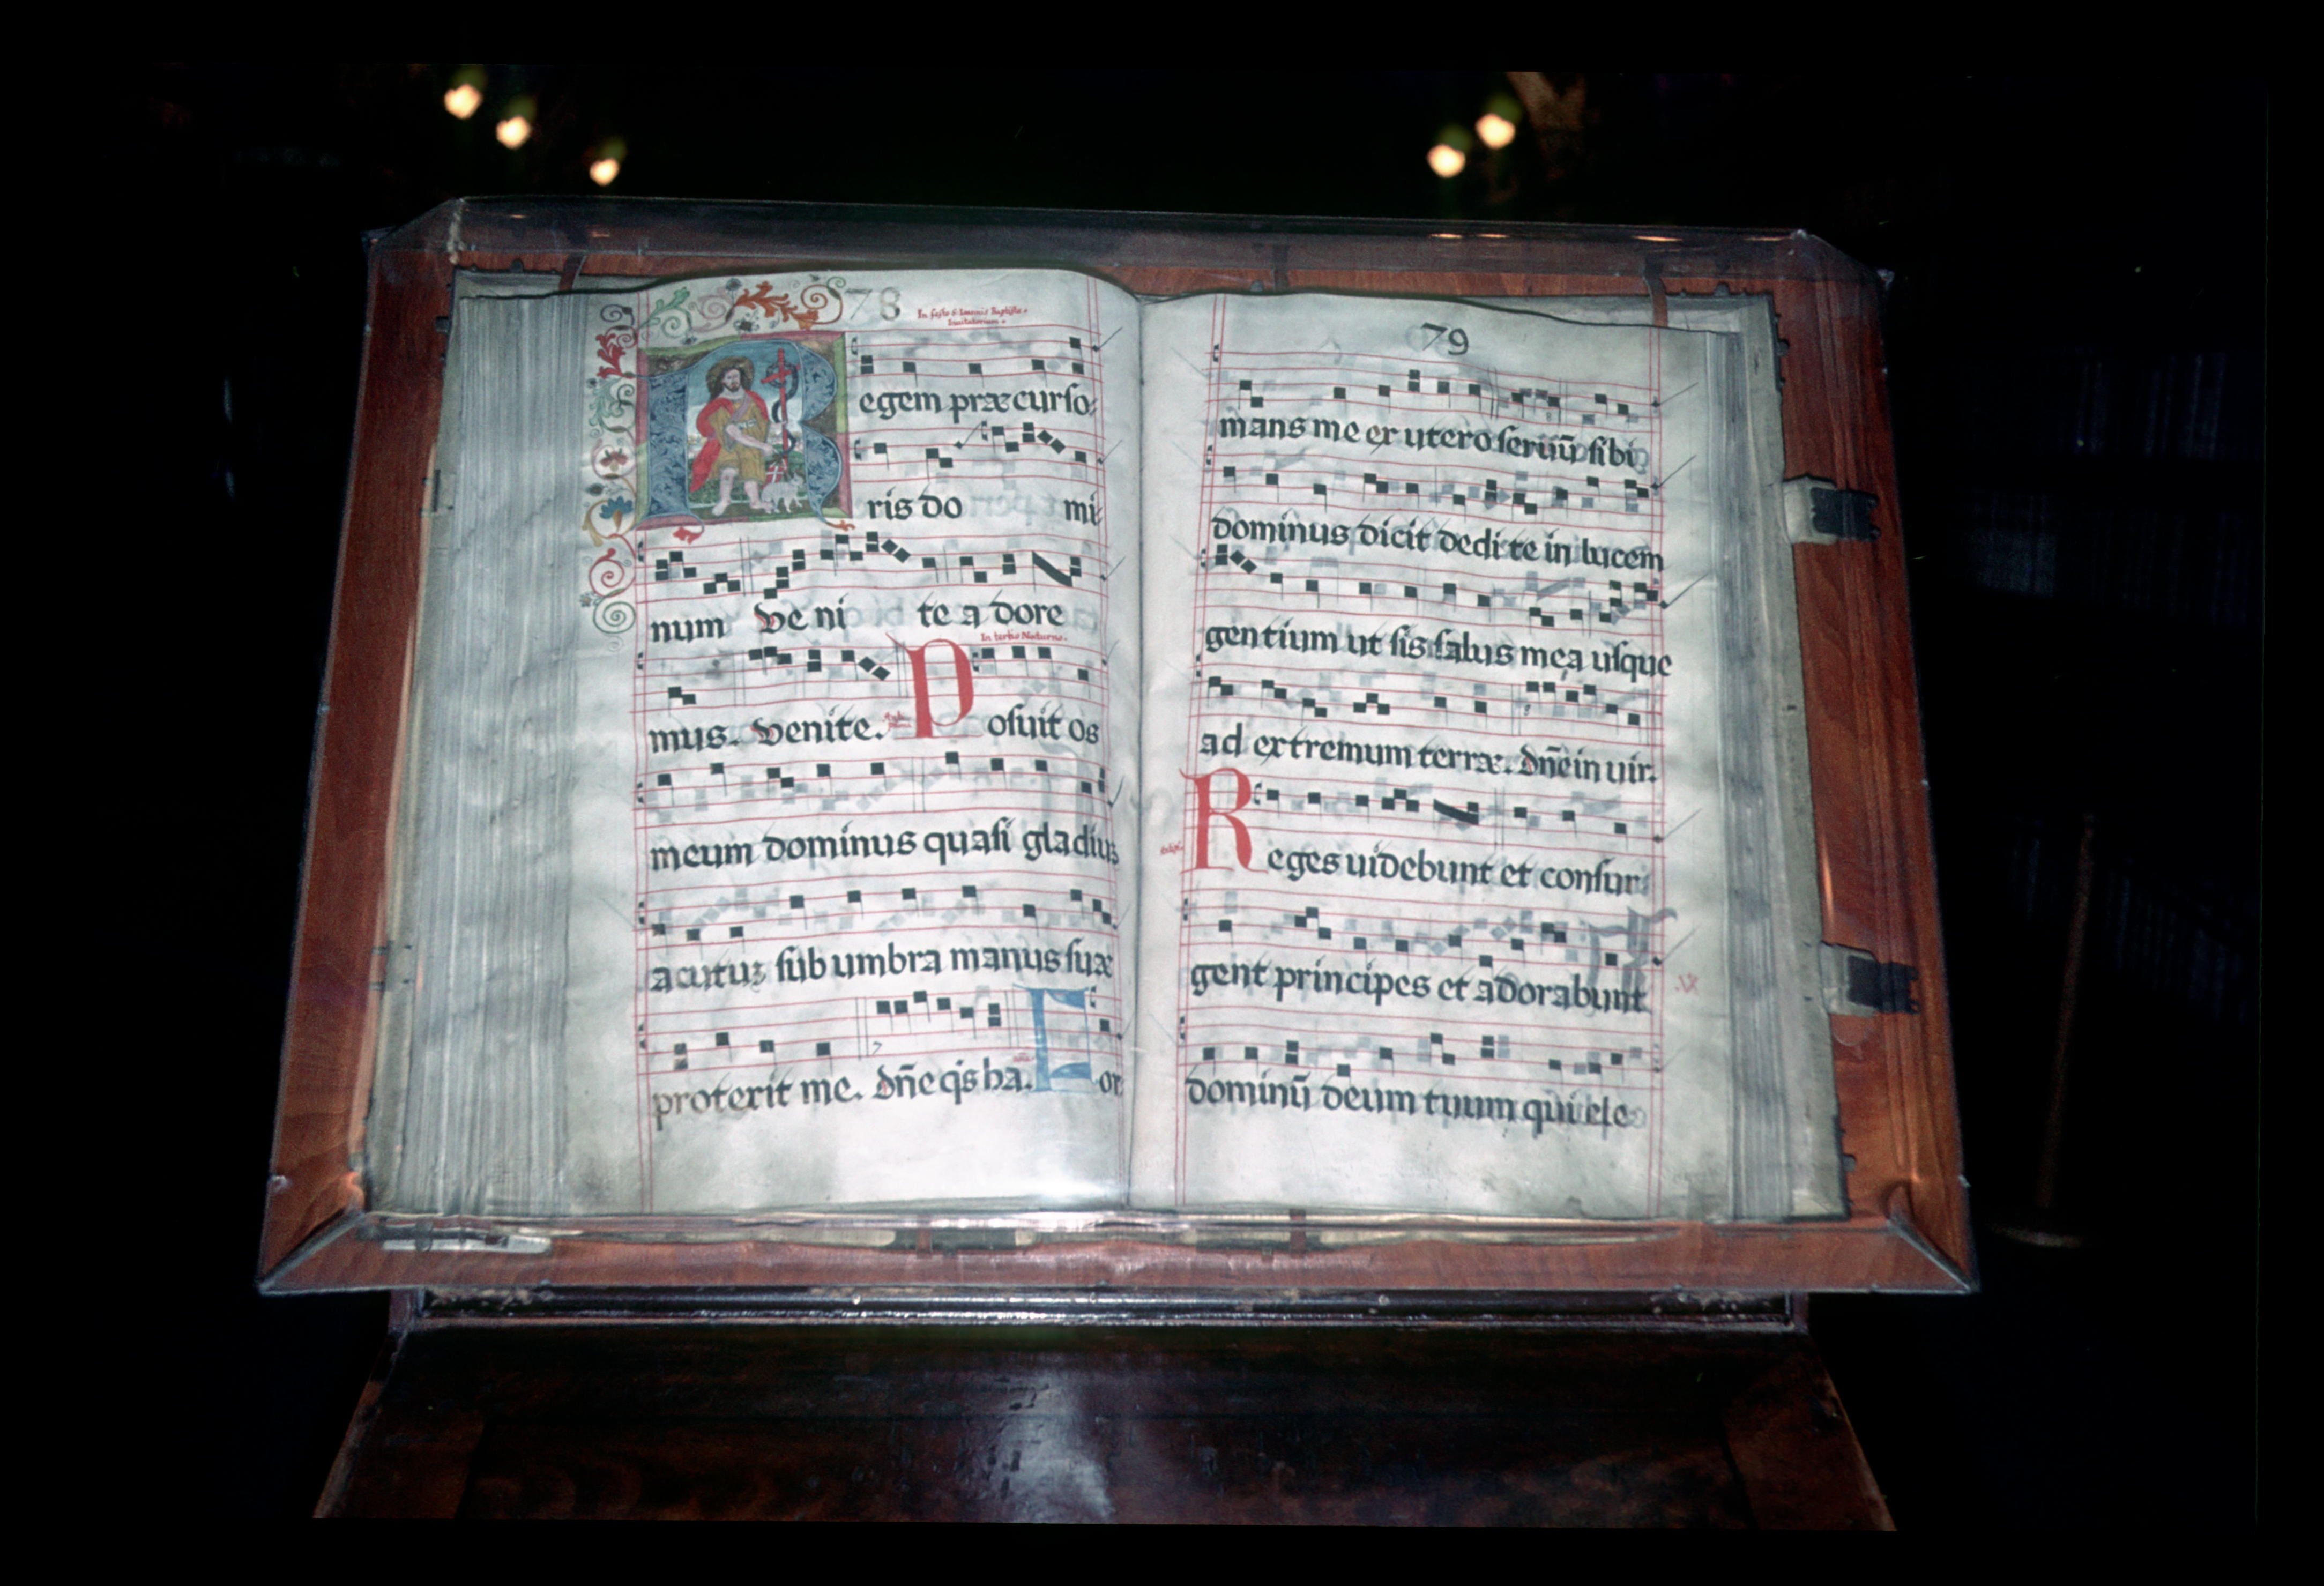 78
In festo S. Ioannis Baptistæ.
Inuitatorium.
Regem præcurso
ris do mi
num Ve ni te a dore
In tertio Nocturno.
mus. Venite. Posuit os
meum dominus quasi gladiũ
acutuz sub umbra manus suæ
protexit me. dñe q̃s ba. For
79
mans me ex utero seruũ sibi
dominus dicit dedi te in lucem
gentium ut sis salus mea usque
ad extremum terræ. dñe in uir.
Reges uidebunt et consur
gent principes et adorabunt
dominũ deum tuum qui ele